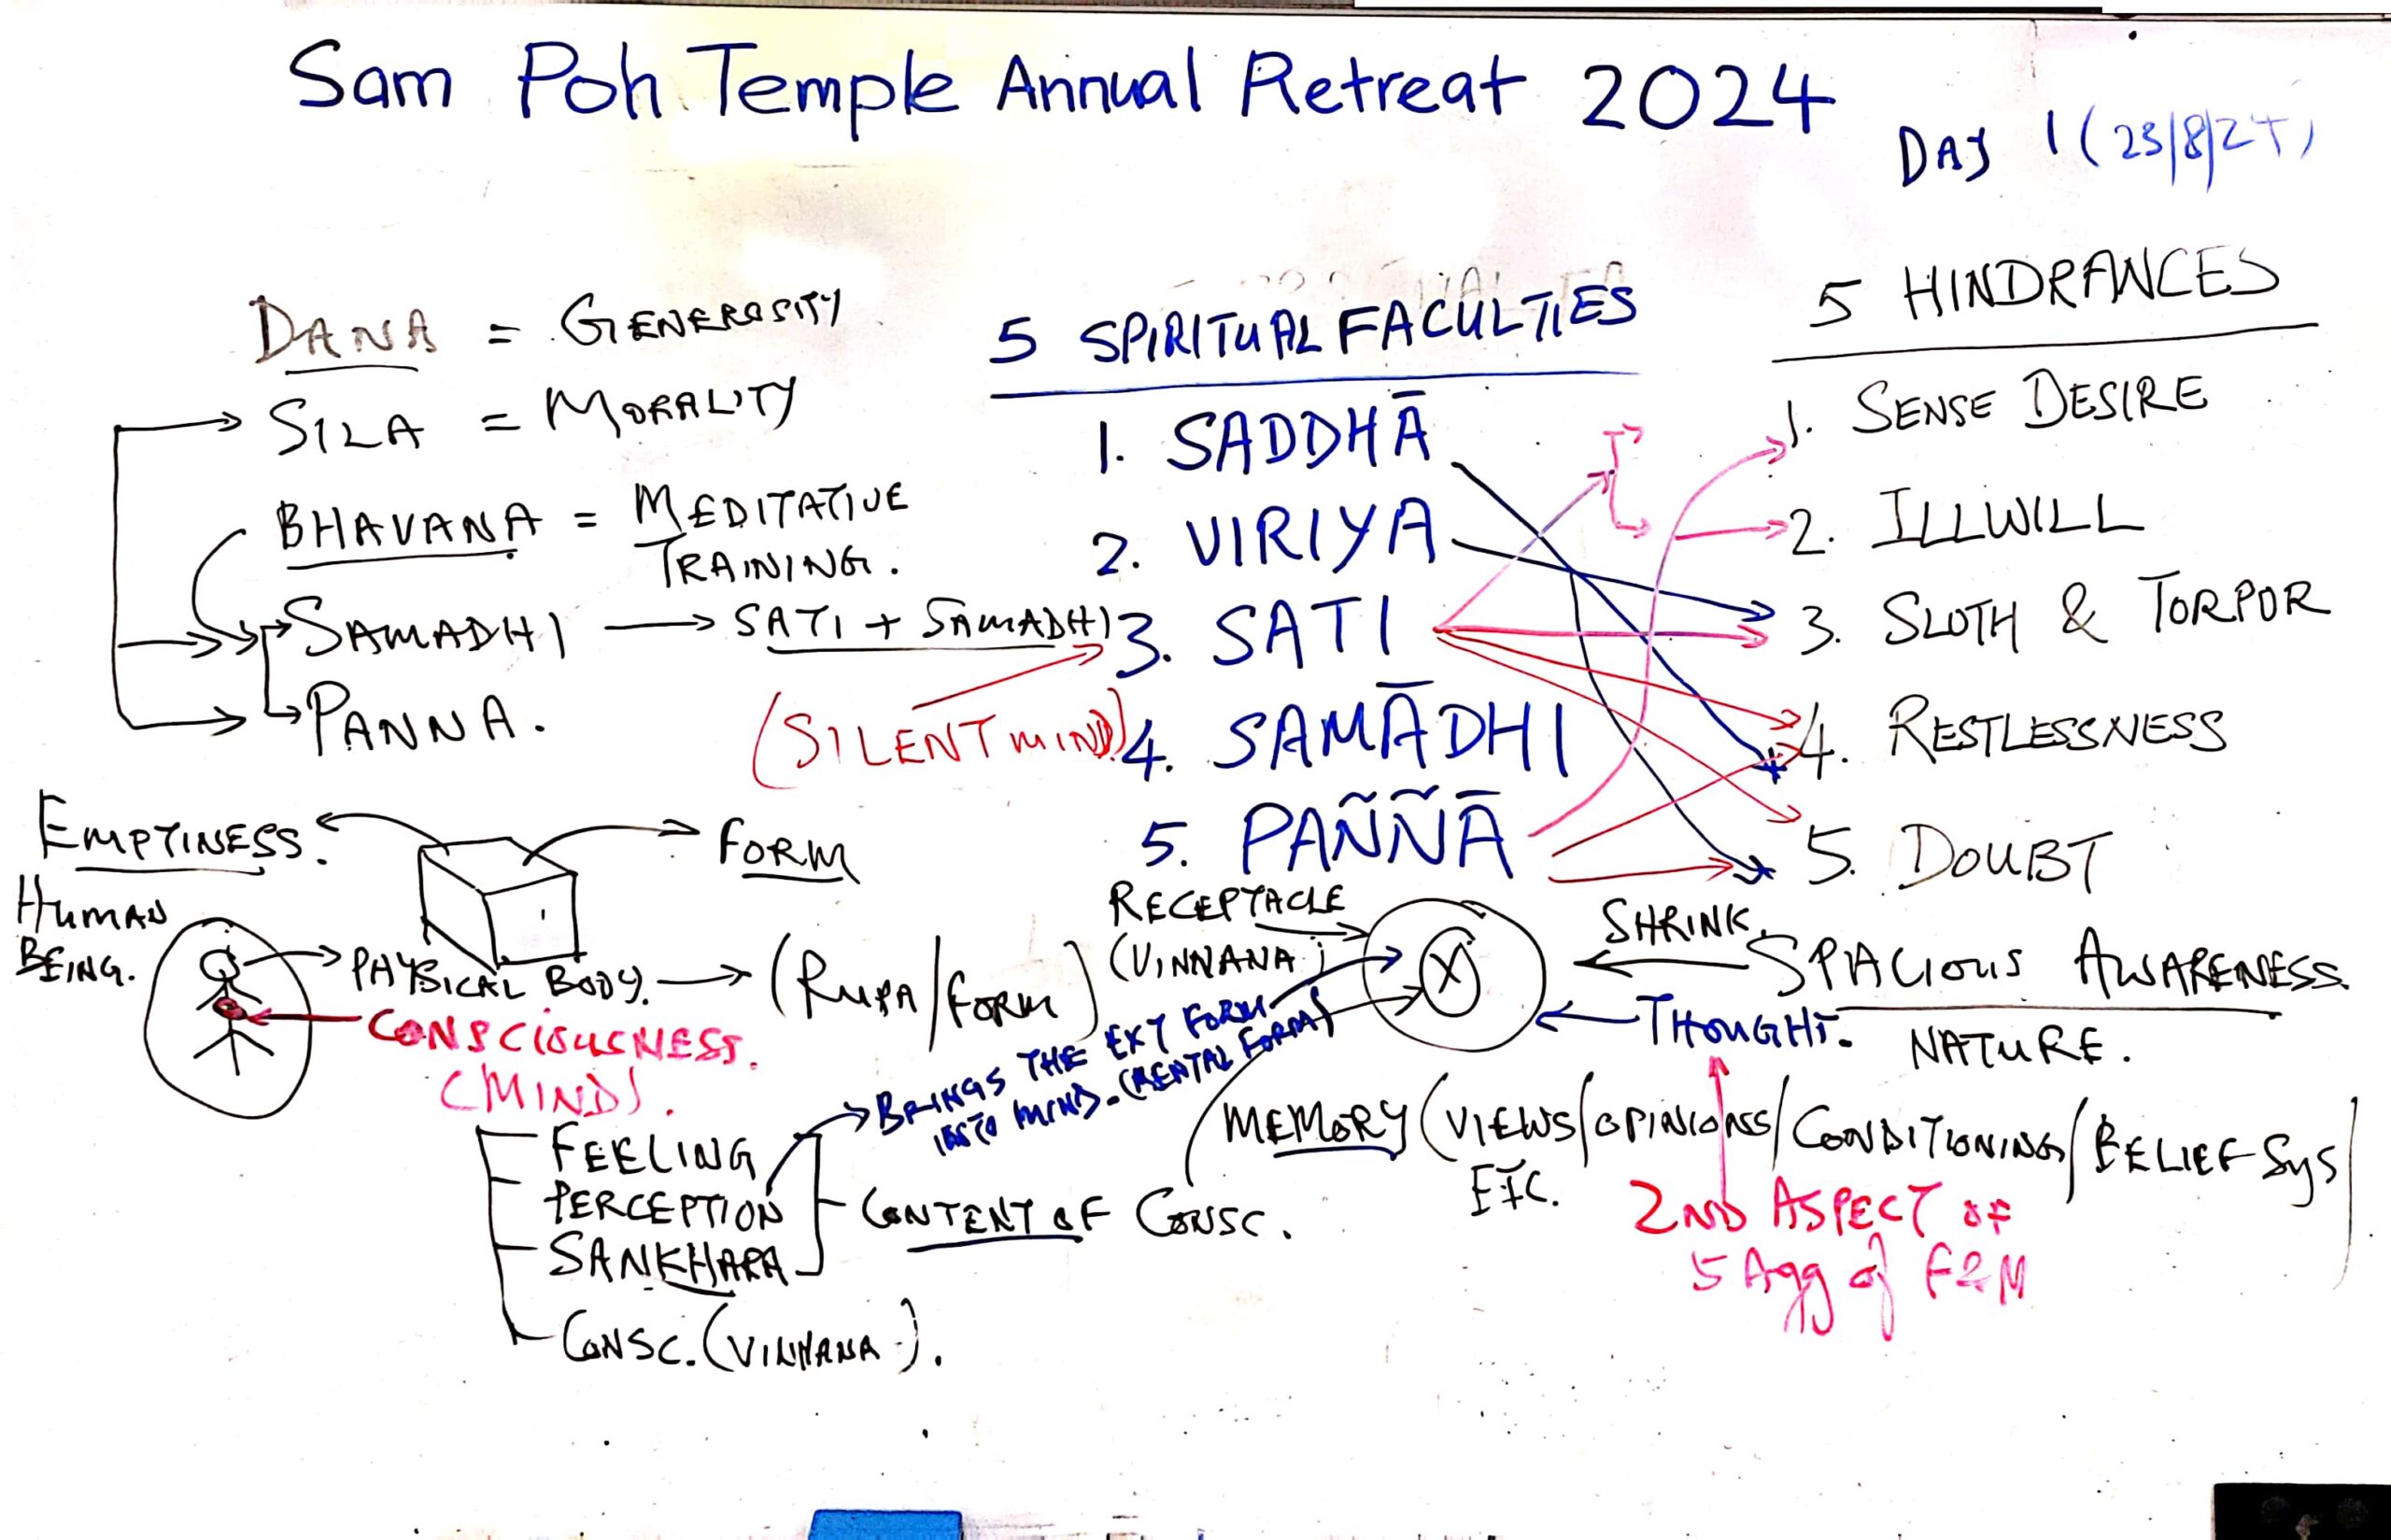 Sam Poh Temple Annual Retreat 2024
DAY 1 (23/8/24)
DANA = GENEROSITY
SILA = MORALITY
BHAVANA = MEDITATIVE
TRAINING.
SAMADHI → SATI + SAMADHI
PANNA.
(SILENT MIND)
5 SPIRITUAL FACULTIES
1. SADDHĀ
2. VIRIYA
3. SATI
4. SAMĀDHI
5. PAÑÑĀ
5 HINDRANCES
1. SENSE DESIRE
2. ILLWILL
3. SLOTH & TORPOR
4. RESTLESSNESS
5. DOUBT
EMPTINESS.
FORM
HUMAN
BEING.
PHYSICAL BODY. → (RUPA/FORM)
CONSCIOUSNESS.
(MIND).
FEELING
PERCEPTION
SANKHARA
CONSC. (VINNANA).
CONTENT OF CONSC.
BRINGS THE EXT FORM
INTO MIND. (MENTAL FORM)
RECEPTACLE
(VINNANA)
X
SHRINK.
SPACIOUS AWARENESS.
NATURE.
THOUGHT.
MEMORY (VIEWS/OPINIONS/CONDITIONING/BELIEF SYS)
ETC.
2ND ASPECT OF
5 Agg of F&M